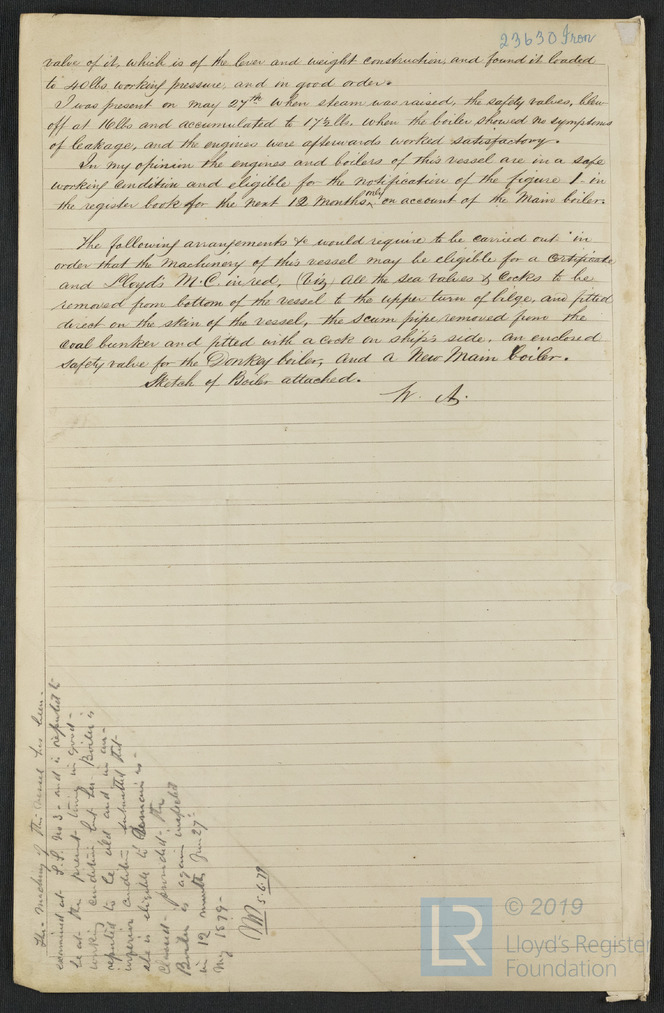 23630 Iron
valve of it, which is of the lever and weight construction, and found it loaded
to 40lbs working pressure, and in good order.
I was present on may 27th when steam was raised, the safety valves, blew
off at 16lbs and accumulated to 17½lbs. when the boiler showed no symptoms
of leakage, and the engines were afterwards worked satisfactory.
In my opinion the engines and boilers of this vessel are in a safe
working condition and eligible for the notification of the figure 1. in
the register book for the next 12 months, only on account of the Main boiler.
The following arrangements &c would require to be carried out in
order that the Machinery of this vessel may be eligible for a Certificate
and Lloyd's M.C. in red, (Viz) All the sea valves & Cocks to be
removed from bottom of the vessel to the upper turn of bilge, and fitted
direct on the skin of the vessel, the scum pipe removed from the
coal bunker and fitted with a Cock on ship's side, an enclosed
safety valve for the Donkey boiler, and a New Main boiler.
Sketch of Boiler attached.
W. A.
The machy of this vessel has been
examined at S.S. No 3 - and is reported to
be at the present time in good
working condition but her Boiler is
reported to be old and in an
inferior condition submitted that
she is eligible to remain as
classed - provided the
Boiler is again inspected
in 12 months from 27
May 1879 -
5.6.79
LR
© 2019
Lloyd's Register
Foundation